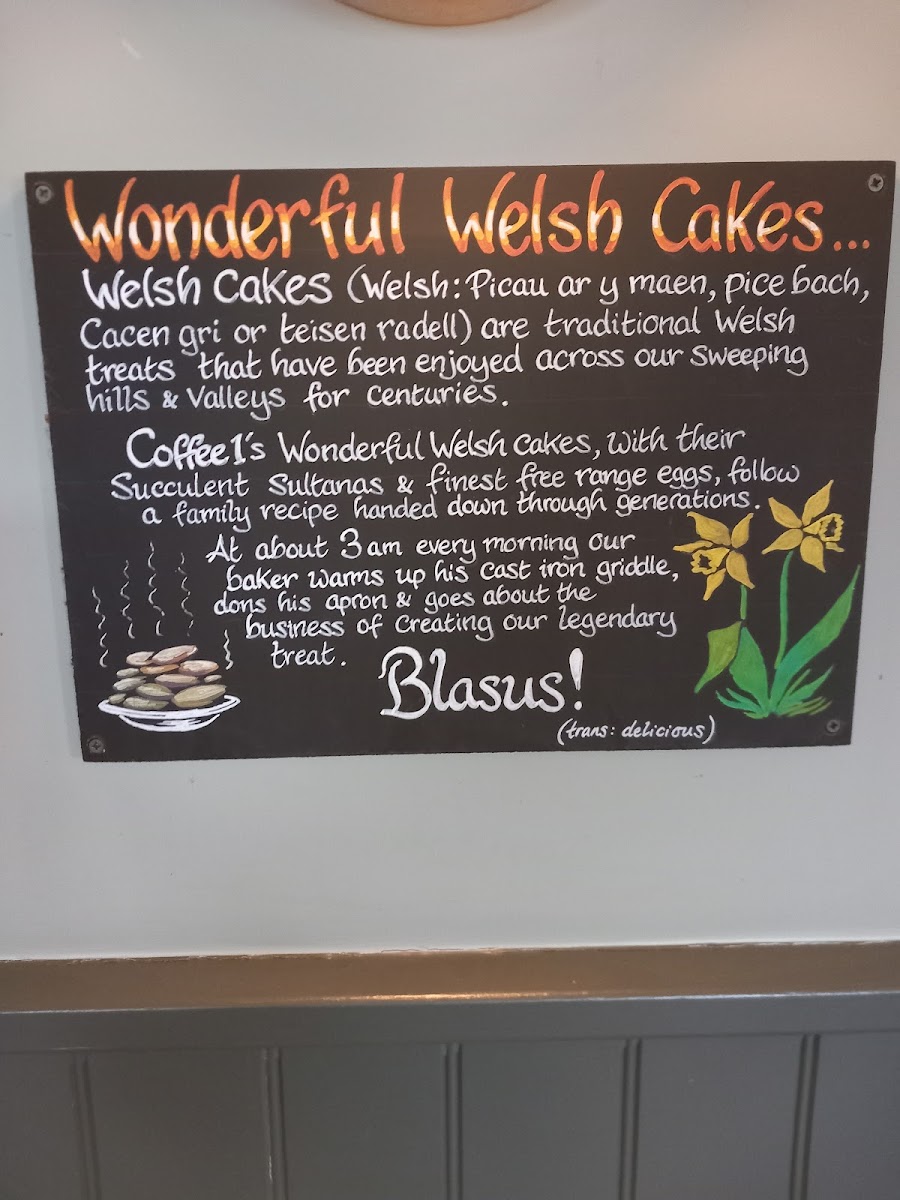 Wonderful Welsh Cakes...
Welsh Cakes (Welsh: Picau ar y maen, pice bach,
Cacen gri or teisen radell) are traditional Welsh
treats that have been enjoyed across our Sweeping
hills & Valleys for Centuries.
Coffee1's Wonderful Welsh Cakes, with their
Succulent Sultanas & finest free range eggs, follow
a family recipe handed down through generations.
At about 3am every morning our
baker warms up his cast iron griddle,
dons his apron & goes about the
business of creating our legendary
treat.
Blasus!
(trans: delicious)